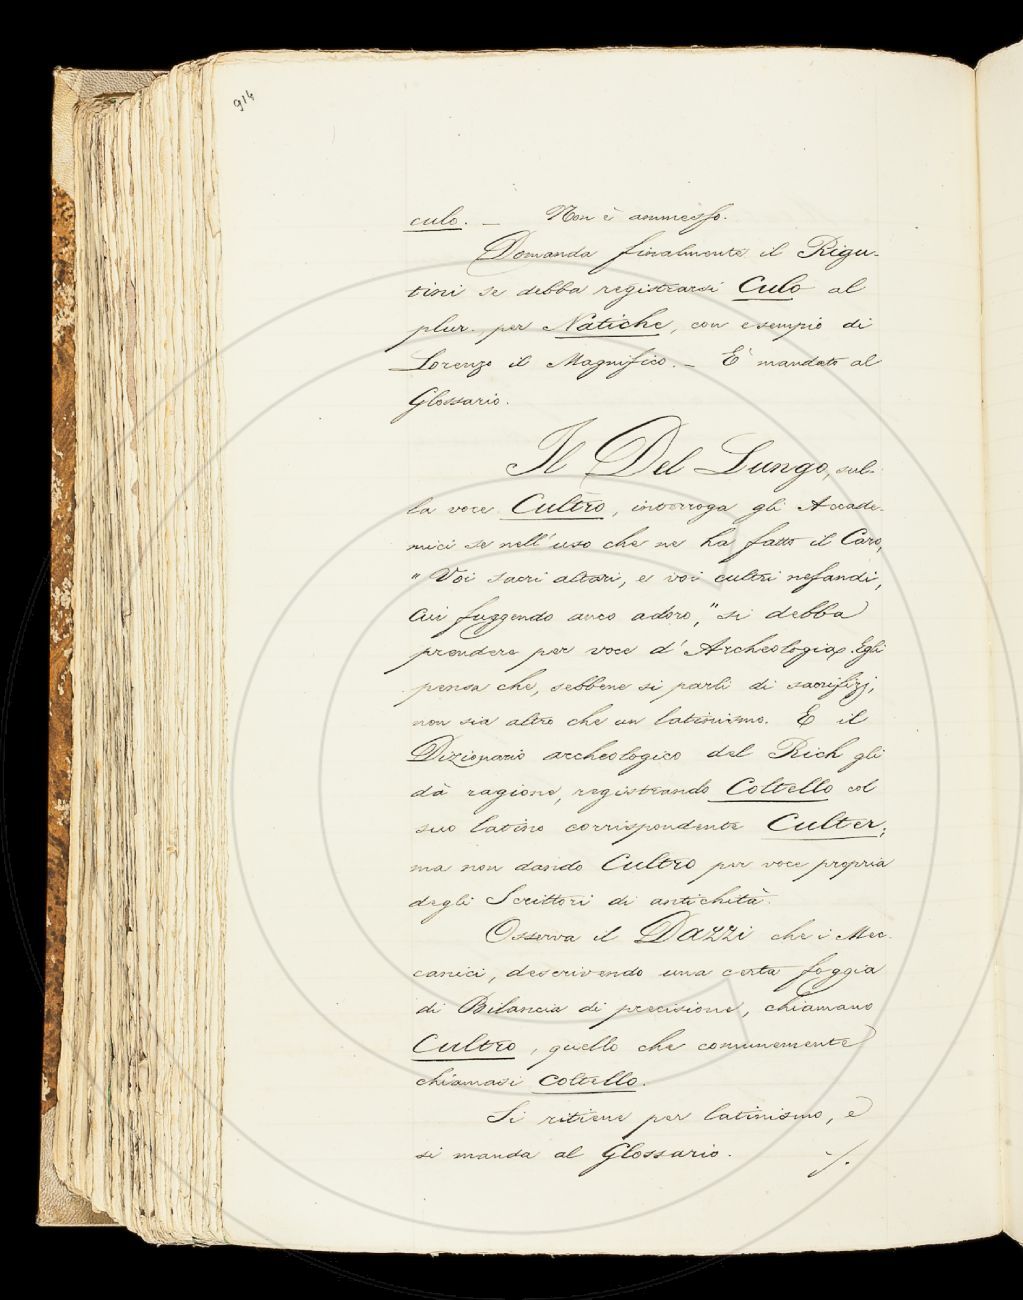 914
culo. — Non è ammesso.
Domanda finalmente il Rigu-
tini se debba registrarsi Culo al
plur. per Natiche, con esempio di
Lorenzo il Magnifico. — È mandato al
Glossario.
Il Del Lungo, sul-
la voce Cultro, interroga gli Accade-
mici se nell'uso che ne ha fatto il Caro,
"Voi sacri altari, e voi cultri nefandi,
Cui fuggendo anco adoro," si debba
prendere per voce d'Archeologia. Egli
pensa che, sebbene si parli di sacrifizj,
non sia altro che un latinismo. E il
Dizionario archeologico del Rich gli
dà ragione, registrando Coltello col
suo latino corrispondente Culter;
ma non dando Cultro per voce propria
degli Scrittori di antichità.
Osserva il Dazzi che i Mec-
canici, descrivendo una certa foggia
di Bilancia di precisione, chiamano
Cultro, quello che comunemente
chiamasi coltello.
Si ritiene per latinismo, e
si manda al Glossario. ./.